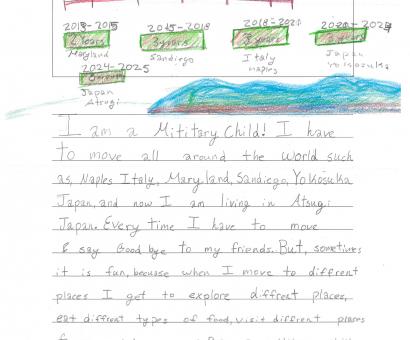 2013-2015 2015-2018 2018-2021 2021-2024
2 Years 3 years 3 years 3 years
Maryland Sandiego Italy Japan
naples Yokosuka
2024-2025
Japan
Atsugi
I am a Mititary Child! I have
to move all around the world such
as, Naples Italy, Maryland, Sandiego, Yokosuka
Japan, and now I am living in Atsugi
Japan. Every time I have to move
I say Good bye to my friends. But, sometimes
it is fun, because when I move to diffrent
places I get to explore diffrent places,
eat diffrent types of food, visit diffrent places